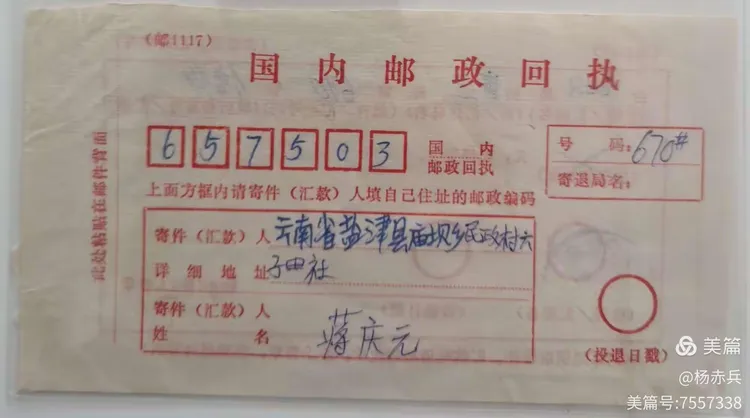 (邮1117)
国内邮政回执
657503
国内
邮政回执
号码:670#
寄退局名:
上面方框内请寄件(汇款)人填自己住址的邮政编码
此处粘贴在邮件背面
寄件(汇款)人 云南省盐津县庙坝乡民政村六
详细地址 子田社
寄件(汇款)人
姓名 蒋庆元
(投退日戳)
美篇
@杨赤兵
美篇号:7557338